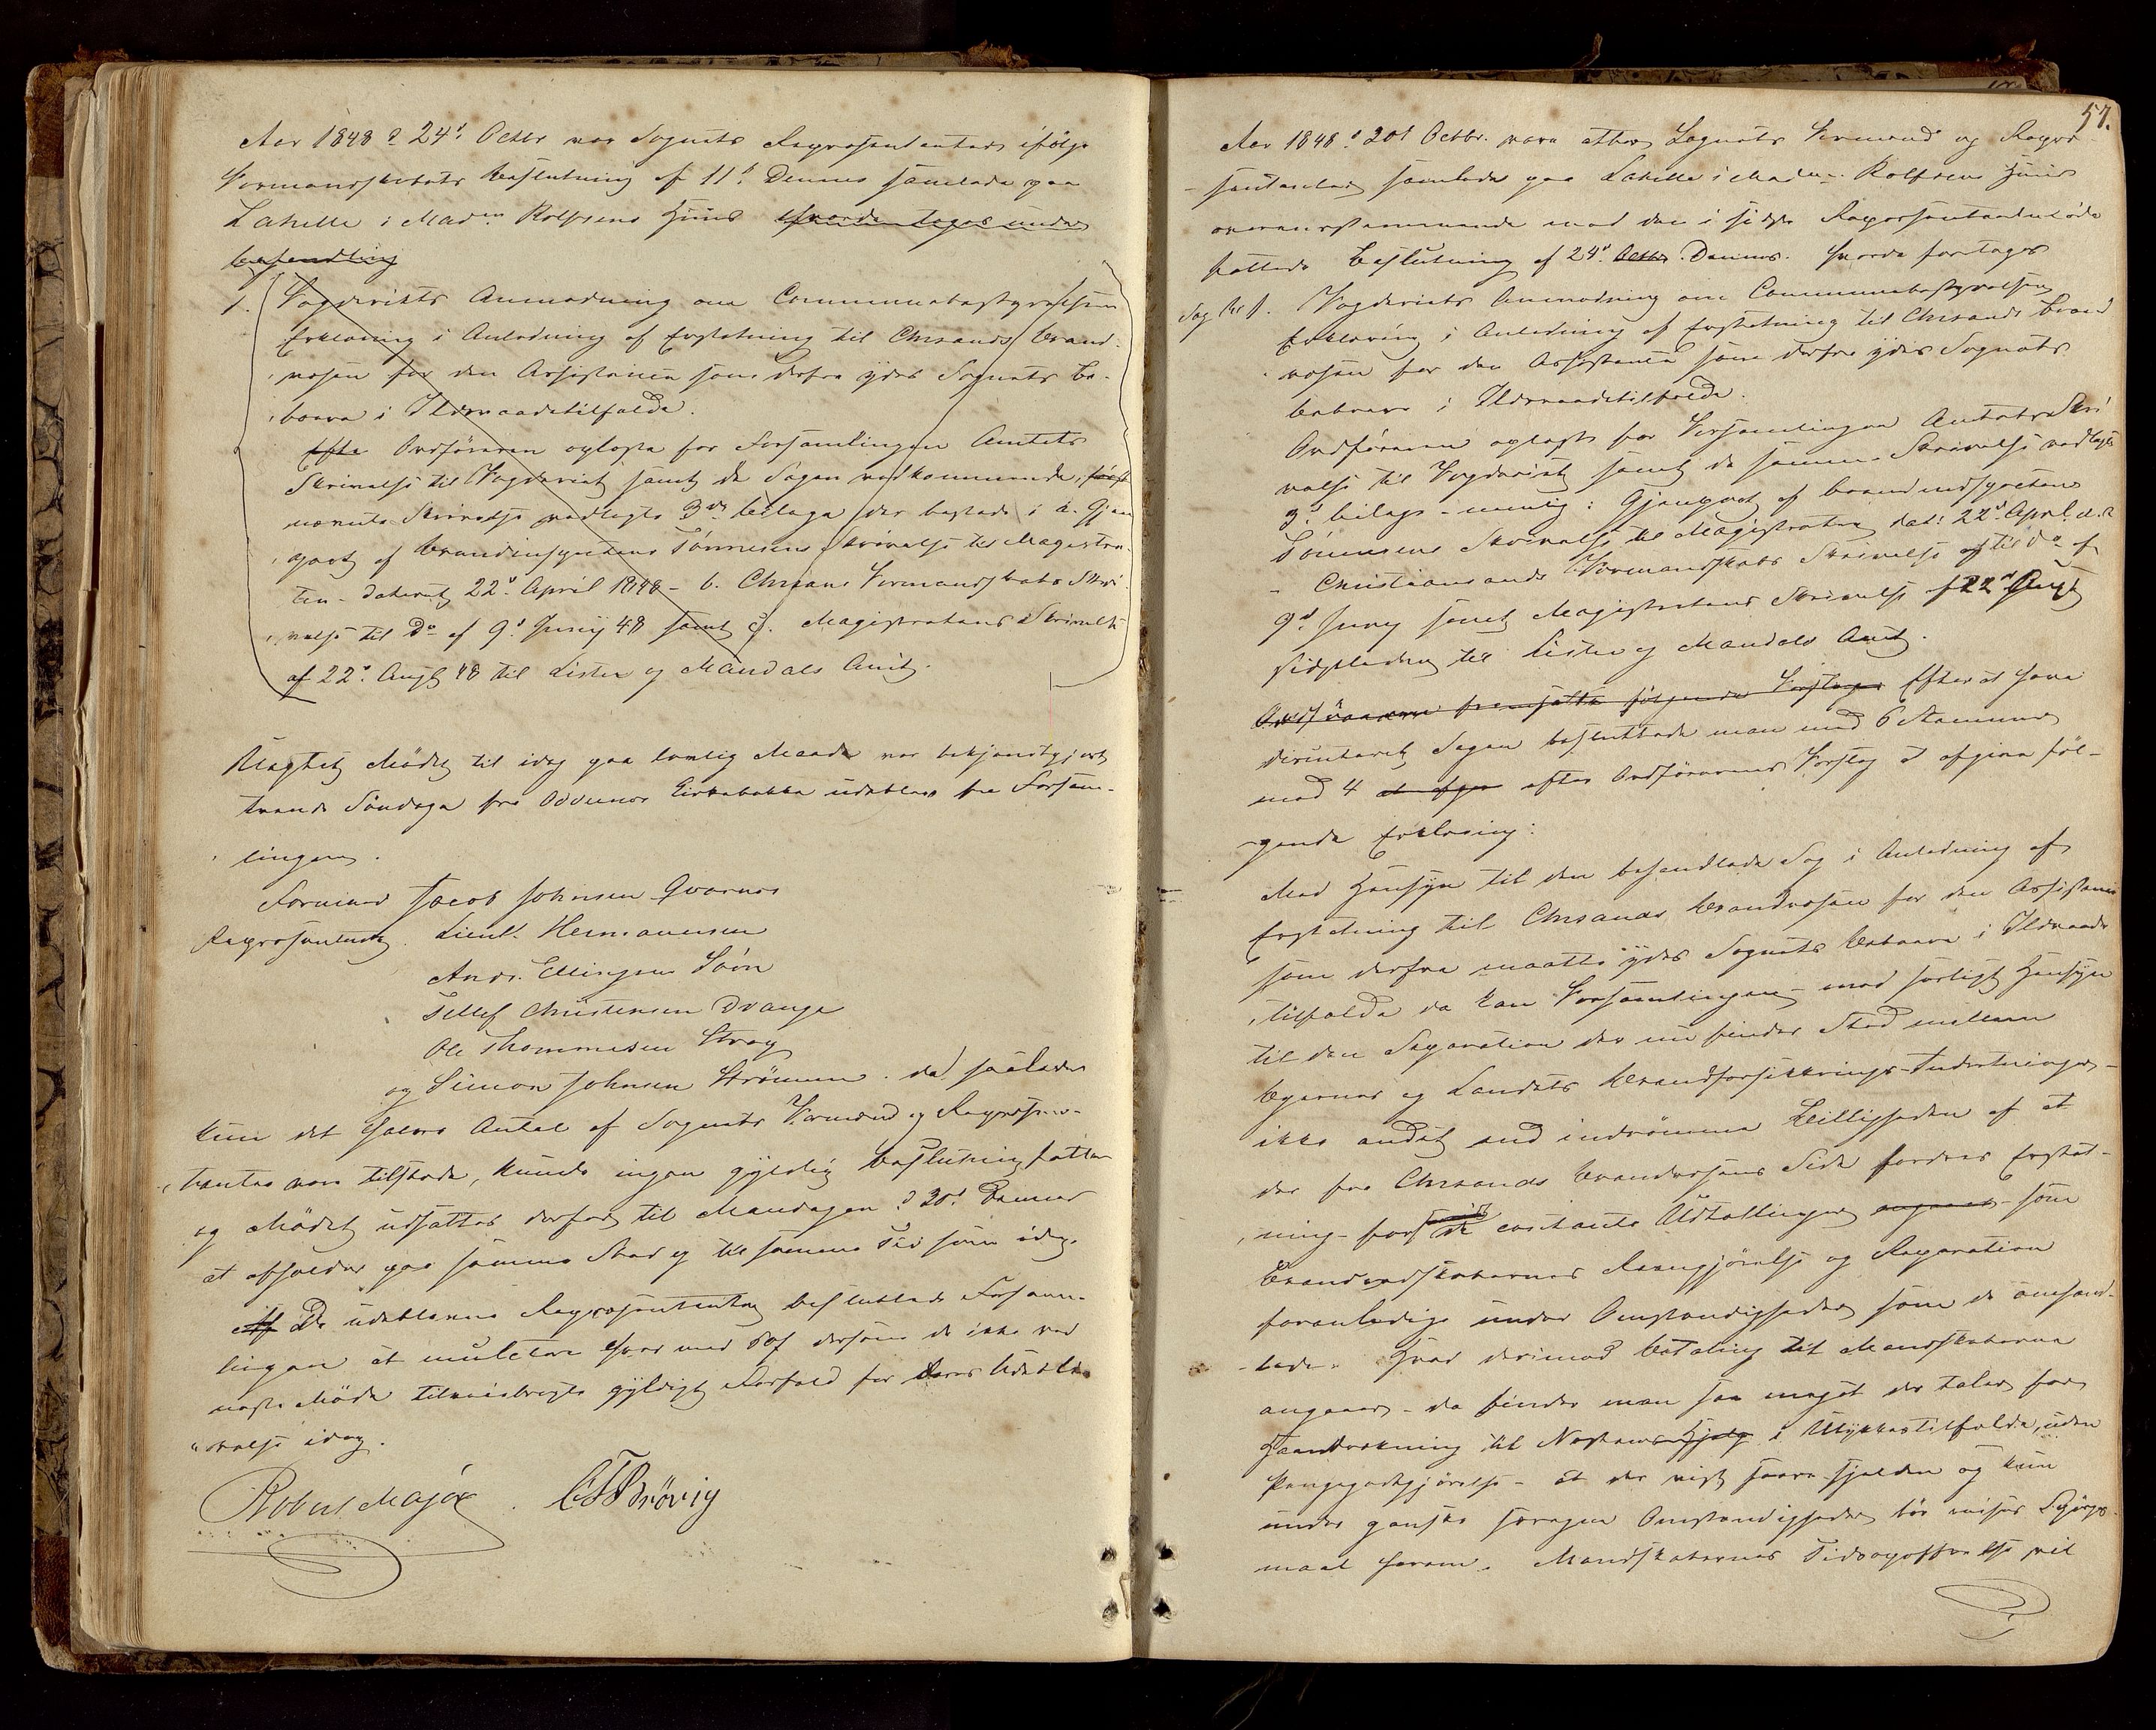 Aar 1848 d 24de Octbr var Sognets Repræsentanter ifølge
Formandskabets Beslutning af 11te Dennes samlede paa
Lahelle i Madm Rolfsens Huus hvorda toges under
behandling
1. Fogderiets Anmodning om Communebestyrelsens
Erklæring i Anledning af Erstatning til Chrsands Brand-
væsen for den Assistance som derfra ydes Sognets Be-
boere i Ildsvaadetilfælde.
Efter Ordføreren oplæste for Forsamlingen Amtets
Skrivelse til Fogderiet samt de Sagen vedkommende,
nævnte Skrivelse vedlagte 3de bilage der bestode i a. Gjen-
part af Brandinspecteur Tönnesens Skrivelse til Magistra-
ten dateret 22de April 1848 - b. Chrsans Formandskabs Skri-
velse til Do af 9de Juny 48 samt c. Magistratens Skrivelse
af 22de Augst 48 til Lister og Mandals Amt.
Uagtet Mødet til idag paa lovlig Maade var bekjendtgjort
tvende Søndage fra Oddernes Kirkebakke udeblev fra Forsam-
lingen.
Formænd Jacob Johnsen Qvarnes
Repræsentant. Lieut. Hermansen
Ands. Ellingsen Støn
Tellef Christensen Drange
Ole Thommesen Stray
og Simon Johnsen Strømme. da saaledes
kun det halve Antal af Sognets Formænd og Repræsen-
tanter vare tilstede, kunde ingen gyldig beslutning fattes
og Mødet udsattes derfor til Mandagen d 30te Dennes
at afholdes paa samme Sted og til samme Tid som idag.
Af De udeblevne Repræsentanter besluttede Forsam-
lingen at mulctere hver med dersom de ikke ved
næste Møde tilveiebragte gyldigt Forfald for deres Udeble-
velse idag.
Robert Major. CTBrövig
57.
Aar 1848 d 30t Octbr. vare atter Sognets Formænd og Repræ-
sentanter samlede paa Lahelle i Madm. Rolfsens Huus
overensstemmende med den i sidste Repræsentantmøde
fattede Beslutning af 24de Octbr. Dennes. hvorda foretoges
Sag No 1. Fogderiets Anmodning om Communebestyrelsens
Erklæring i Anledning af Erstatning til Chrsands Brand
væsen for den Assistance som derfra ydes Sognets
Beboere i Ildsvaadetilfælde.
Ordføreren oplæste for Forsamlingen Amtets Skri
velse til Fogderiet samt de samme Skrivelse vedlagte
3de bilage - nemlig: Gjenpart af brandinspecteur
Tönnesens Skrivelse til Magistraten dat: 22de April d. A
- Christiansands Formandskabs Skrivelse til Do af
9de Juny samt Magistratens Skrivelse af 22de Augst
sidstleden til Lister og Mandals Amt.
Ordføreren fremsatte følgende Forslag Efter at have
discuteret Sagen besluttede man med 6 Stemmer
mod 4 at afgive efter Ordførerens Forslag at afgive føl-
gende Erklæring:
Med Hensyn til den behandlede Sag i Anledning af
Erstatning til Chrsands Brandvæsen for den Assistance
som derfra maatte ydes Sognets Beboere i Ildsvaade
tilfælde da kan Forsamlingen med særligt Hensyn
til den Separation der nu finder Sted mellem
Byernes og Landets Brandforsikkrings-Indretninger -
ikke andet end indrømme Billigheden af at
der fra Chrsands Brandvæsens Side fordres Erstat-
ning for de contante Udtællinger angaaende som
Brandredskabernes Reengjørelse og Reparation
foranledige under Omstændigheder som de omhand-
lede. Hvad derimod Betaling til Mandskaberne
angaaer - da finder man saa meget der taler for
Haandrækning til Næstens Hjelp i Ulykkestilfælde, uden
Pengegodtgjørelse - at der vist saare sjelden og kun
under ganske særegne Omstændigheder bør reises Spørgs-
maal herom. Mandskabernes Tidsopoffrelse vil